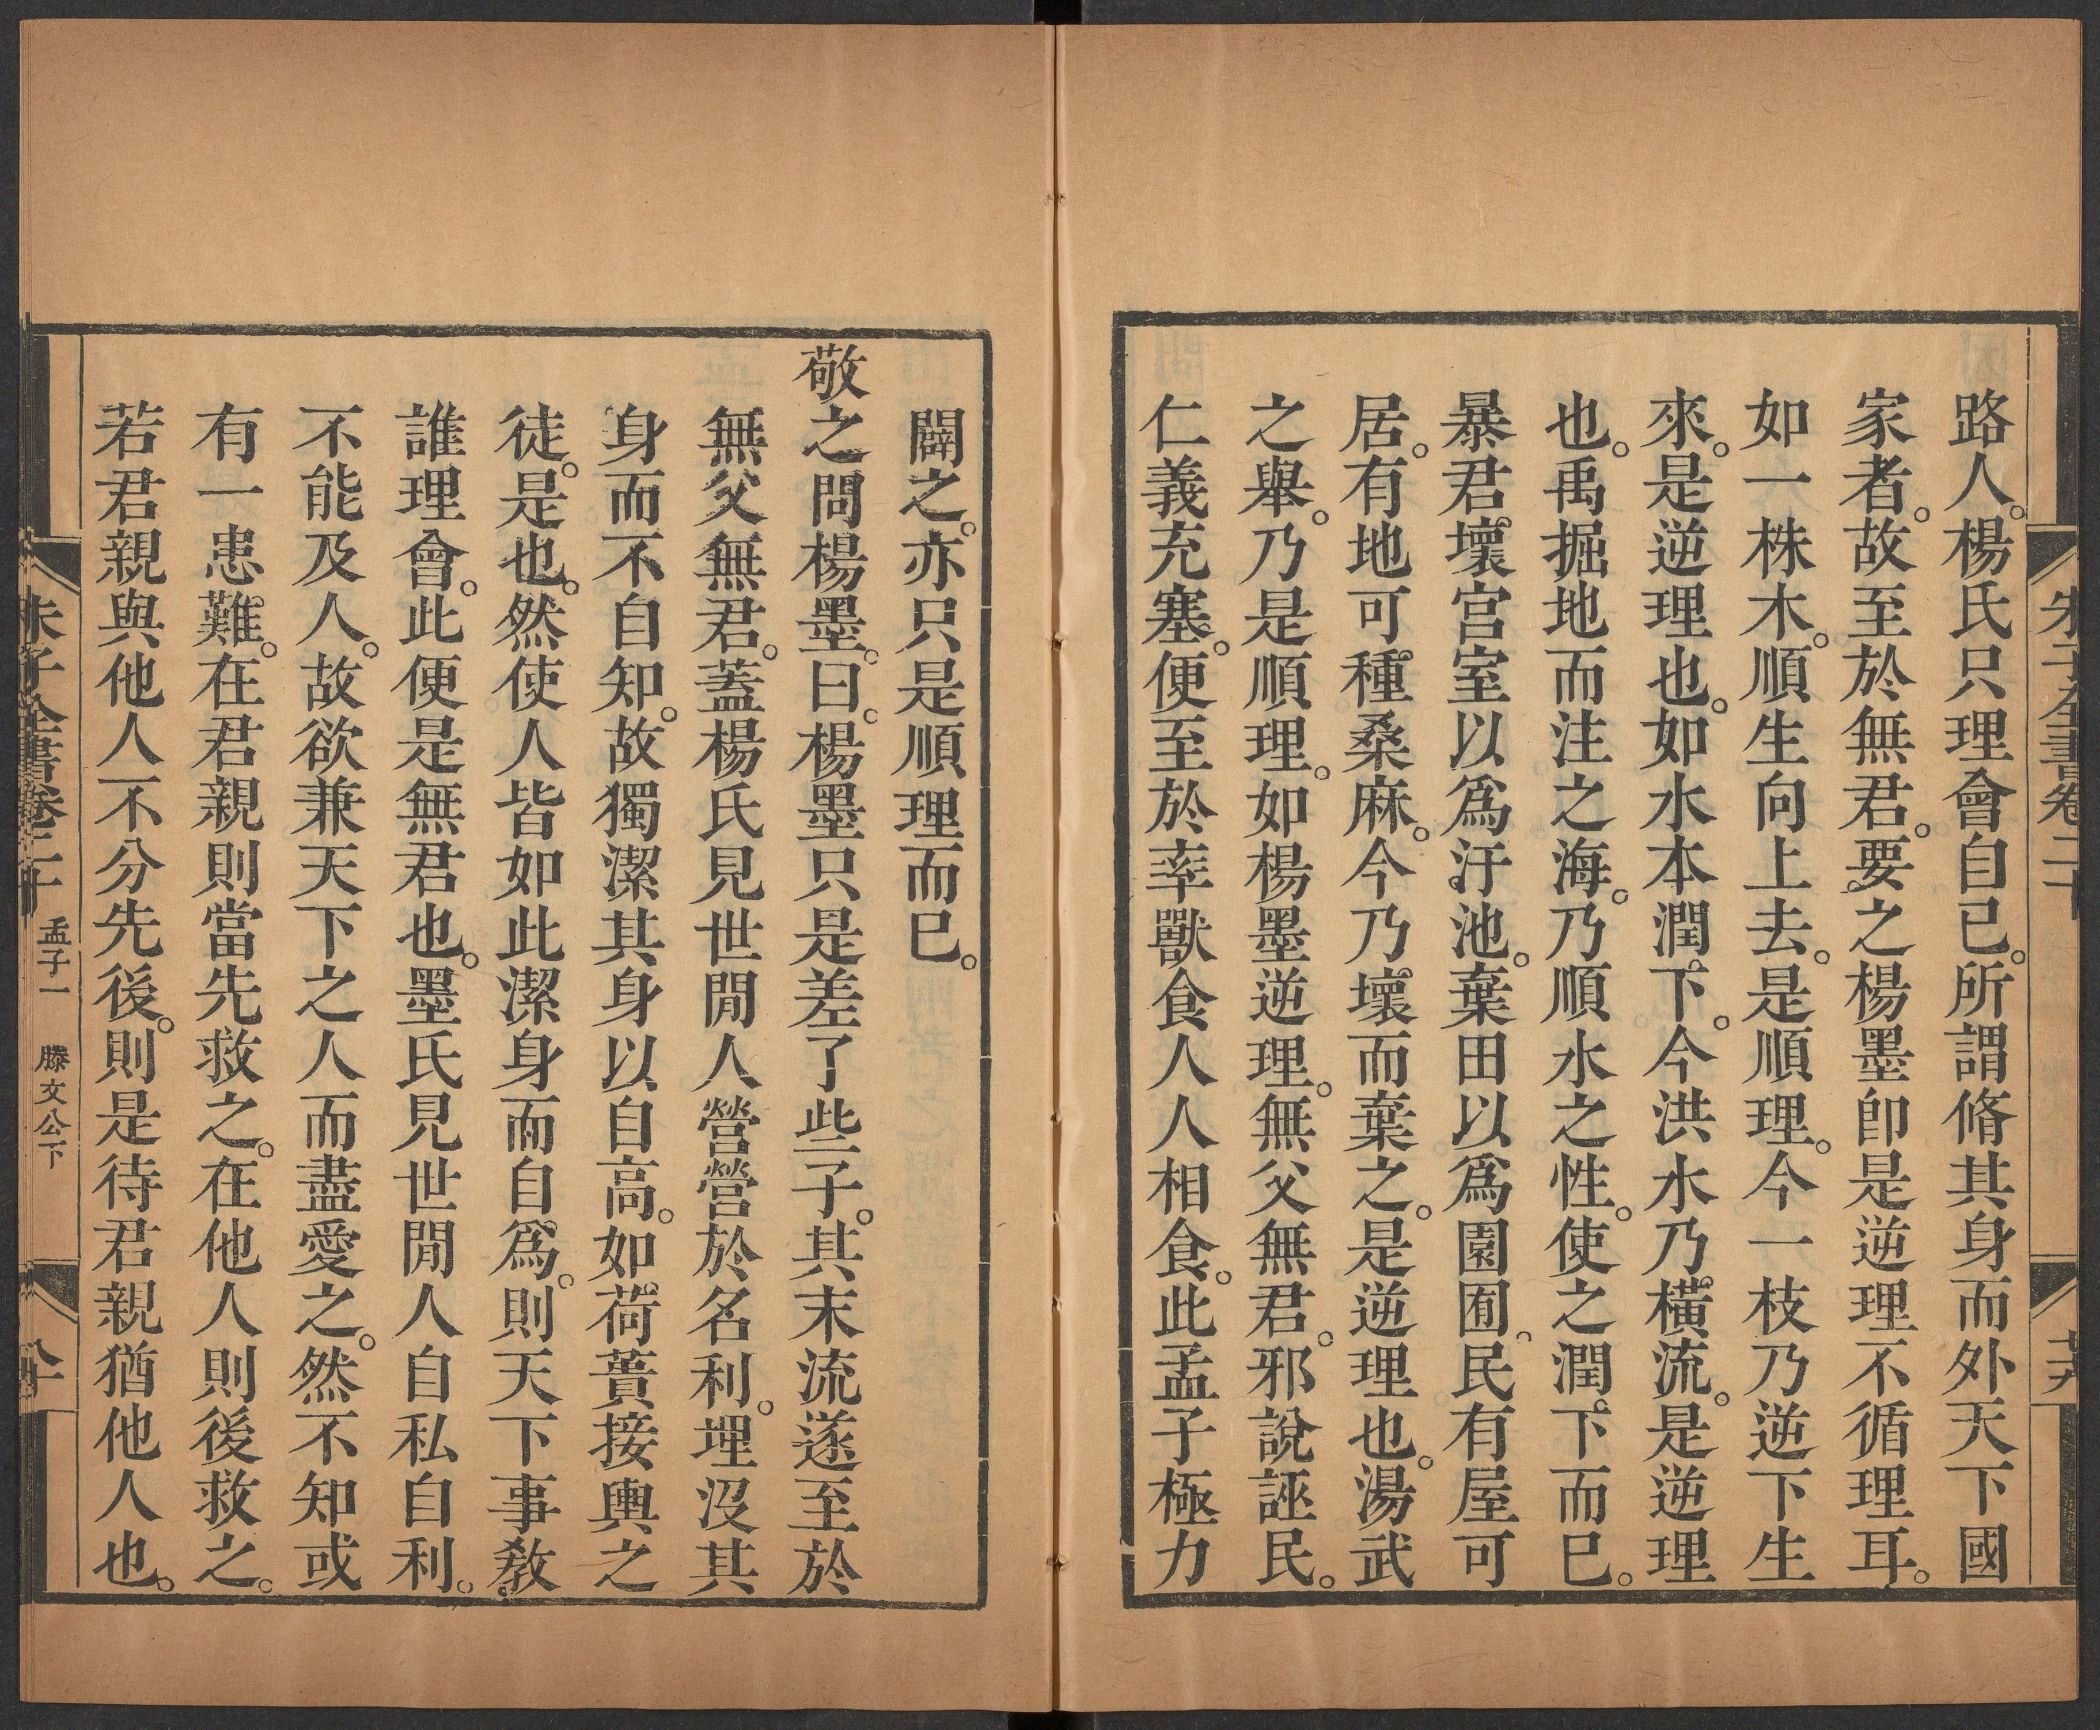 朱子全書卷二十
路人。楊氏只理會自已。所謂脩其身而外天下國
家者。故至於無君。要之楊墨卽是逆理不循理耳。
如一株木。順生向上去。是順理。今一枝乃逆下生
來。是逆理也。如水本潤下。今洪水乃橫流。是逆理
也。禹掘地而注之海。乃順水之性。使之潤下而已。
暴君壞宮室以爲汙池。棄田以爲園囿、民有屋可
居。有地可種桑麻。今乃壞而棄之。是逆理也。湯武
之舉。乃是順理。如楊墨逆理。無父無君。邪說誣民。
仁義充塞。便至於率獸食人人相食。此孟子極力
闢之。亦只是順理而已。
敬之問楊墨。曰。楊墨只是差了些子。其末流遂至於
無父無君。蓋楊氏見世閒人營營於名利。埋沒其
身而不自知。故獨潔其身以自高。如荷蕢接輿之
徒。是也。然使人皆如此潔身而自爲。則天下事敎
誰理會。此便是無君也。墨氏見世閒人自私自利。
不能及人。故欲兼天下之人而盡愛之。然不知或
有一患難。在君親則當先救之。在他人則後救之。
若君親與他人不分先後。則是待君親猶他人也。
朱子全書卷二十 孟子一 滕文公下